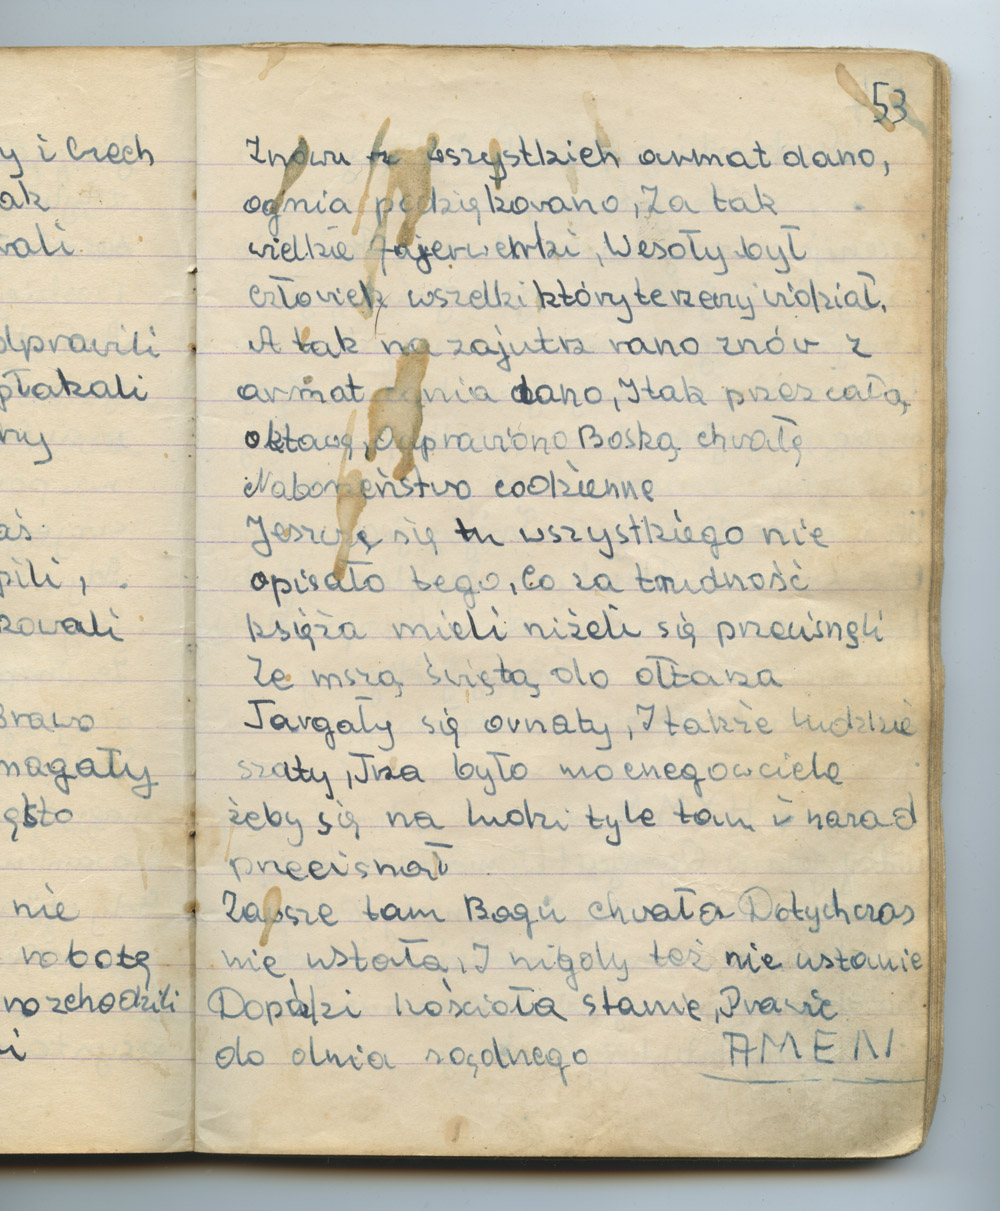 y i Czech
ak
vali
dpravili
płakali
ry
aś
pili,
zovali
Brawo
magały
ęsto
nie
robotę
rozchodzili
i
53
Znowu z wszystkich armat dano,
ognia podziękovano, Za tak
wielkie fajerwerki, Wesoły był
człoviek wszelki który te rzeczy widział.
A tak na zajutrz rano znóv z
armat ognia dano, I tak przez całą
oktawę, Odpraviono Boską chwałę
Nabożeństwo codzienne
Jeszczę się tu wszystkiego nie
opisało tego, Co za trudność
księża mieli niżeli się przecisnęli
Ze mszą świętą do ołtarza
Targały się ornaty, I także ludzkie
szaty, Trza było mocnego w ciele
żeby się na ludzi tyle tam i narad
przecisnął
Zawsze tam Bogu chvała Dotychczas
nie ustała, I nigdy też nie ustanie
Dopóki kościoła stanie, Prawie
do dnia sądnego AMEN